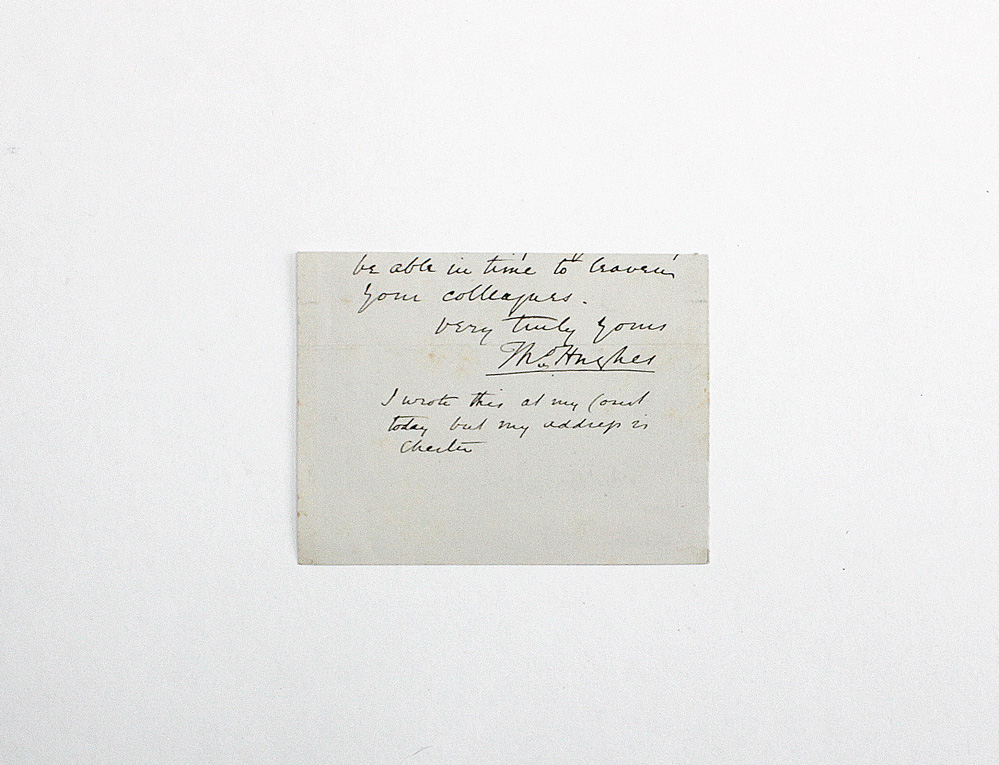 be able in time to leaven
your colleagues.
Very truly yours
Thos Hughes
I wrote this at my Court
today but my address is
Chester